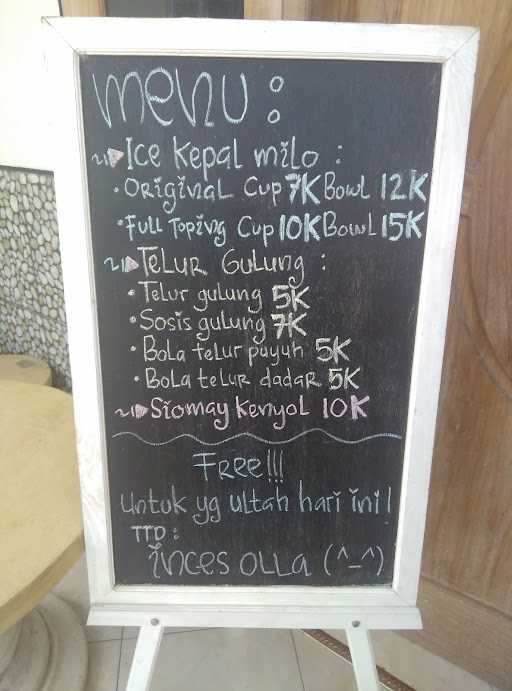 Menu :
Ice Kepal milo :
• Original Cup 7K Bowl 12K
• Full Toping Cup 10K Bowl 15K
Telur Gulung :
• Telur gulung 5K
• Sosis gulung 7K
• Bola telur puyuh 5K
• Bola telur dadar 5K
Siomay Kenyol 10K
Free!!!
untuk yg ultah hari ini!
TTD :
inces olla (^_^)